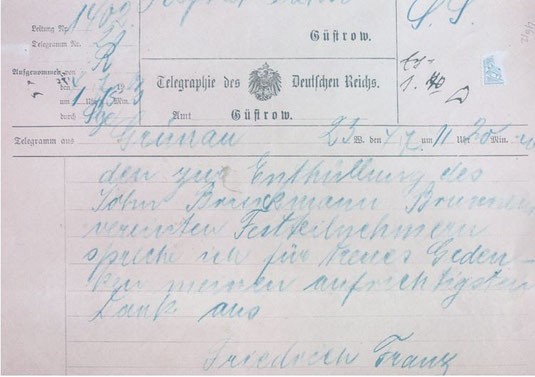 Leitung Nr. 1402.
Telegramm Nr.
Güstrow. S. S.
Aufgenommen von
um 1 Uhr Min.
durch
Telegraphie des Deutschen Reichs.
Amt Güstrow.
Telegramm aus Grünau 23 W. den 4/7 um 11 Uhr 20 Min.
den zur Enthüllung des
John Brinckmann Brunnens
vereinten Festteilnehmern
spreche ich für treues Geden-
ken meinen aufrichtigsten
Dank aus
Friedrich Franz